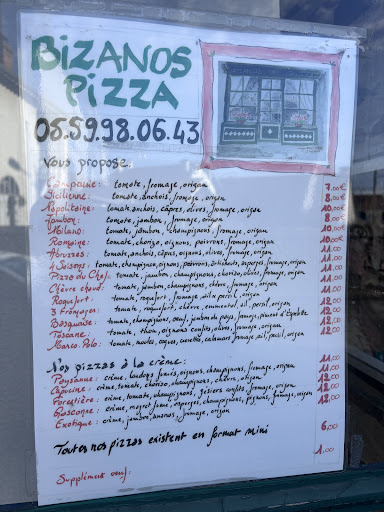 BIZANOS
PIZZA
05.59.98.06.43
Vous propose.
Campagne: tomate, fromage, origan 7.00€
Sicilienne: tomate, anchois, fromage, origan 8.00€
Napolitaine: tomate, anchois, câpres, olives, fromage, origan 10.00€
Jambon: tomate, jambon, fromage, origan 8.00€
Milano: tomate, jambon, champignons, fromage, origan 10.00€
Romaine: tomate, chorizo, oignons, poivrons, fromage, origan 10.00€
Abruzzes: tomate, anchois, câpres, oignons, olives, fromage, origan 11.00
4 Saisons: tomate, champignons, oignons, poivrons, artichauts, asperges, fromage, origan 11.00
Pizza du Chef: tomate, jambon, champignons, chorizo, olives, fromage, origan 11.00
Chèvre chaud: tomate, jambon, champignons, chèvre, fromage, origan 11.00
Roquefort: tomate, roquefort, fromage, ail, persil, origan 11.00
3 Fromages: tomate, roquefort, chèvre, emmental, ail, persil, origan 12.00
Basquaise: tomate, champignons, oeuf, jambon du pays, fromage, piment d'Espelette 12.00
Toscane: tomate, thon, oignons confits, olives, fromage, origan 12.00
Marco Polo: tomate, moules, coques, crevettes, calamars, fromage, ail, persil, origan 12.00
Nos pizzas à la crème:
Paysanne: crème, lardons fumés, oignons, champignons, fromage, origan 11,00
Capucine: crème, tomate, chorizo, champignons, chèvre, origan 11,00
Forestière: crème, tomate, champignons, gésiers confits, fromage, origan 12,00
Gascogne: crème, magret fumé, asperges, champignons, pignons, fromage, origan 12,00
Exotique: crème, jambon, ananas, fromage, origan 12,00
Toutes nos pizzas existent en format mini 6,00
Supplément oeuf: 1,00